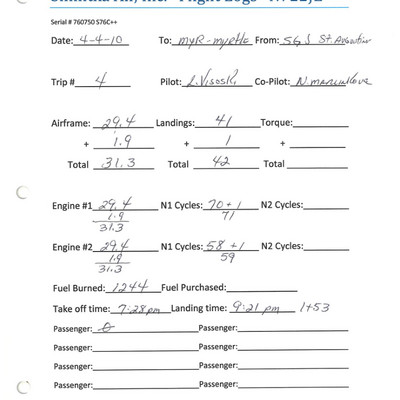 Serial # 760750 S76C++
Date: 4-4-10 To: MYR-Myrtle From: SGJ St. Augustine
Trip # 4 Pilot: L. Visoski Co-Pilot: N.
Airframe: 29.4 Landings: 41 Torque:
+ 1.9 + 1 +
Total 31.3 Total 42 Total
Engine #1 29.4 N1 Cycles: 70+1 N2 Cycles:
1.9 71
31.3
Engine #2 29.4 N1 Cycles: 58+1 N2 Cycles:
1.9 59
31.3
Fuel Burned: 1244 Fuel Purchased:
Take off time: 7:28pm Landing time: 9:21 pm 1+53
Passenger: 0 Passenger:
Passenger: Passenger:
Passenger: Passenger:
Passenger: Passenger: